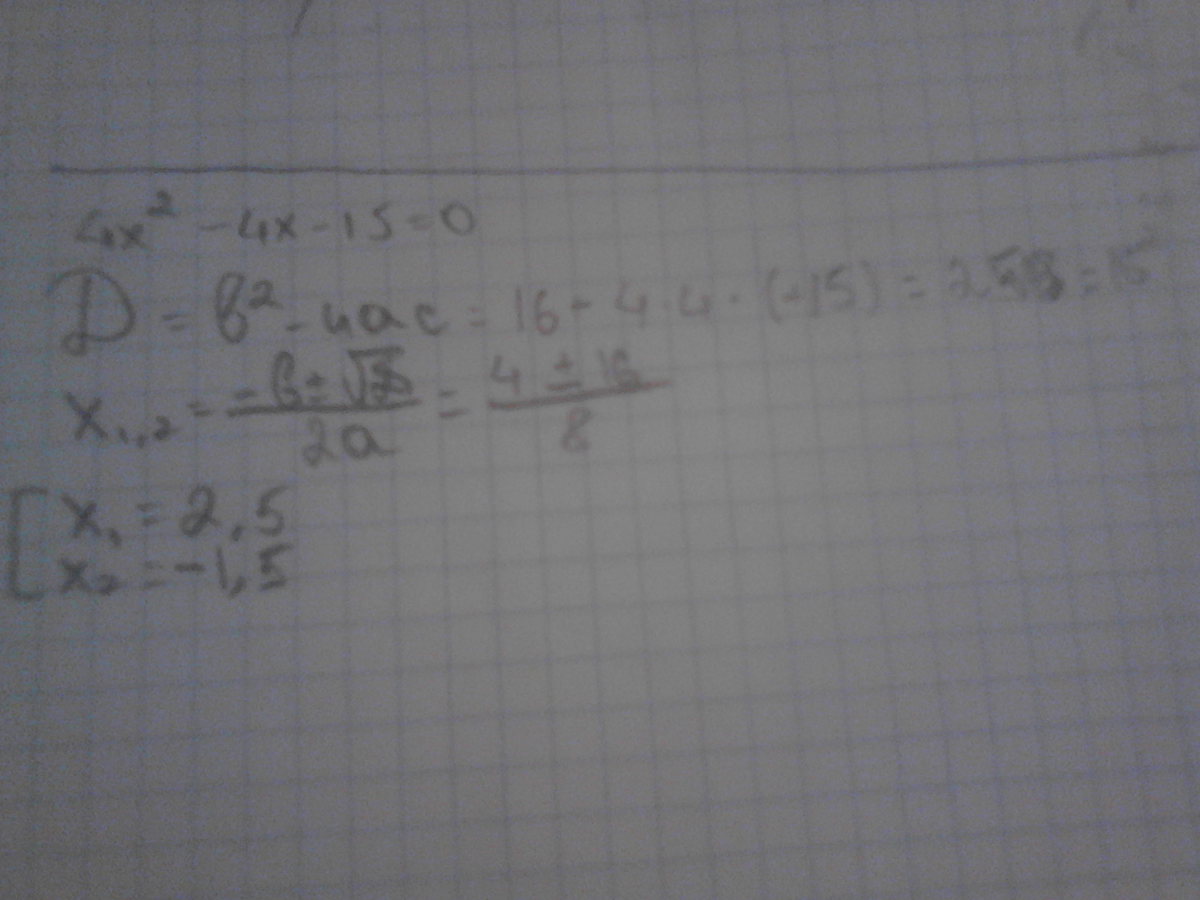 4x² - 4x - 15 = 0
D = b² - 4ac = 16 - 4·4·(-15) =
x₁,₂ = (-b ± √D)/2a = (4 ± 16)/8
[ x₁ = 2,5
x₂ = -1,5